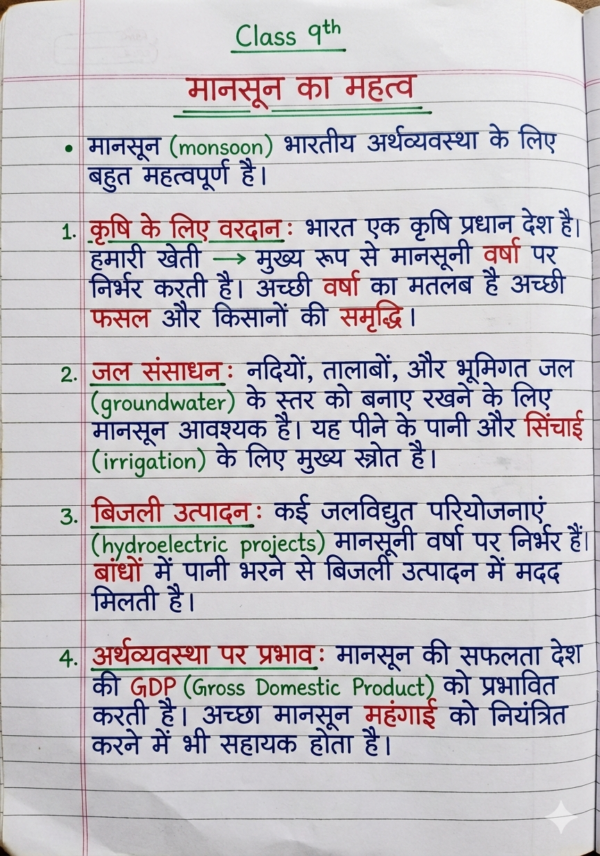 Class 9th
मानसून का महत्व
• मानसून (monsoon) भारतीय अर्थव्यवस्था के लिए
बहुत महत्वपूर्ण है।
1. कृषि के लिए वरदान: भारत एक कृषि प्रधान देश है।
हमारी खेती → मुख्य रूप से मानसूनी वर्षा पर
निर्भर करती है। अच्छी वर्षा का मतलब है अच्छी
फसल और किसानों की समृद्धि।
2. जल संसाधन: नदियों, तालाबों, और भूमिगत जल
(groundwater) के स्तर को बनाए रखने के लिए
मानसून आवश्यक है। यह पीने के पानी और सिंचाई
(irrigation) के लिए मुख्य स्त्रोत है।
3. बिजली उत्पादन: कई जलविद्युत परियोजनाएं
(hydroelectric projects) मानसूनी वर्षा पर निर्भर हैं।
बांधों में पानी भरने से बिजली उत्पादन में मदद
मिलती है।
4. अर्थव्यवस्था पर प्रभाव: मानसून की सफलता देश
की GDP (Gross Domestic Product) को प्रभावित
करती है। अच्छा मानसून महंगाई को नियंत्रित
करने में भी सहायक होता है।